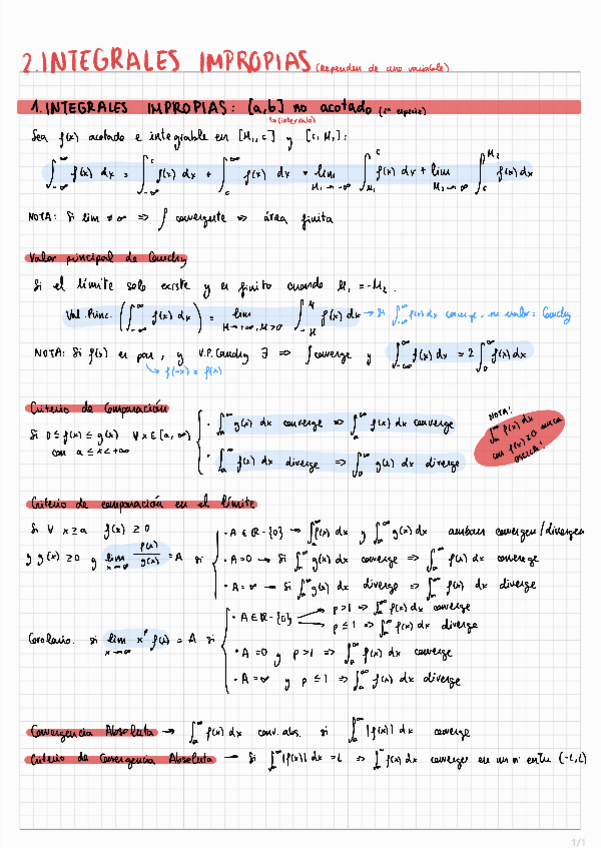 2. INTEGRALES IMPROPIAS (dependen de una variable)
1. INTEGRALES IMPROPIAS: [a,b] no acotado (1ª especie)
↳(intervalo)
Sea f(x) acotado e integrable en [M₁, c] y [c, M₂]:
∫_{-∞}^{∞} f(x) dx = ∫_{-∞}^{c} f(x) dx + ∫_{c}^{∞} f(x) dx = lim_{M₁→-∞} ∫_{M₁}^{c} f(x) dx + lim_{M₂→∞} ∫_{c}^{M₂} f(x) dx
NOTA: Si lim ≠ ∞ ⇒ ∫ convergente ⇒ área finita
Valor principal de Cauchy
Si el límite solo existe y es finito cuando M₁ = -M₂.
Val. Princ. (∫_{-∞}^{∞} f(x) dx) = lim_{M→+∞, M>0} ∫_{-M}^{M} f(x) dx → Si ∫_{-∞}^{∞} f(x) dx converge. su valor = Cauchy
NOTA: Si f(x) es par, y V.P. Cauchy ∃ ⇒ ∫ converge y ∫_{-∞}^{∞} f(x) dx = 2 ∫_{0}^{∞} f(x) dx
↳ f(-x) = f(x)
Criterio de Comparación
Si 0 ≤ f(x) ≤ g(x) ∀x ∈ [a, ∞)
con a ≤ x < +∞
· ∫_{a}^{∞} g(x) dx converge ⇒ ∫_{a}^{∞} f(x) dx converge
· ∫_{a}^{∞} f(x) dx diverge ⇒ ∫_{a}^{∞} g(x) dx diverge
NOTA:
∫_{a}^{∞} f(x) dx
con f(x) ≥ 0 nunca
oscila!
Criterio de comparación en el límite
Si ∀ x ≥ a f(x) ≥ 0
y g(x) ≥ 0 y lim_{x→∞} f(x)/g(x) = A si
· A ∈ ℝ - {0} → ∫_{a}^{∞} f(x) dx y ∫_{a}^{∞} g(x) dx ambas convergen/divergen
· A = 0 → Si ∫_{a}^{∞} g(x) dx converge ⇒ ∫_{a}^{∞} f(x) dx converge
· A = ∞ → Si ∫_{a}^{∞} g(x) dx diverge ⇒ ∫_{a}^{∞} f(x) dx diverge
Corolario. si lim_{x→∞} x^p f(x) = A si
· A ∈ ℝ - {0} → p > 1 ⇒ ∫_{a}^{∞} f(x) dx converge
p ≤ 1 ⇒ ∫_{a}^{∞} f(x) dx diverge
· A = 0 y p > 1 ⇒ ∫_{a}^{∞} f(x) dx converge
· A = ∞ y p ≤ 1 ⇒ ∫_{a}^{∞} f(x) dx diverge
Convergencia Absoluta → ∫_{a}^{∞} f(x) dx conv. abs. si ∫_{a}^{∞} |f(x)| dx converge
Criterio de Convergencia Absoluta → Si ∫_{a}^{∞} |f(x)| dx = L ⇒ ∫_{a}^{∞} f(x) dx converge en un nº entre (-L, L)
1/1